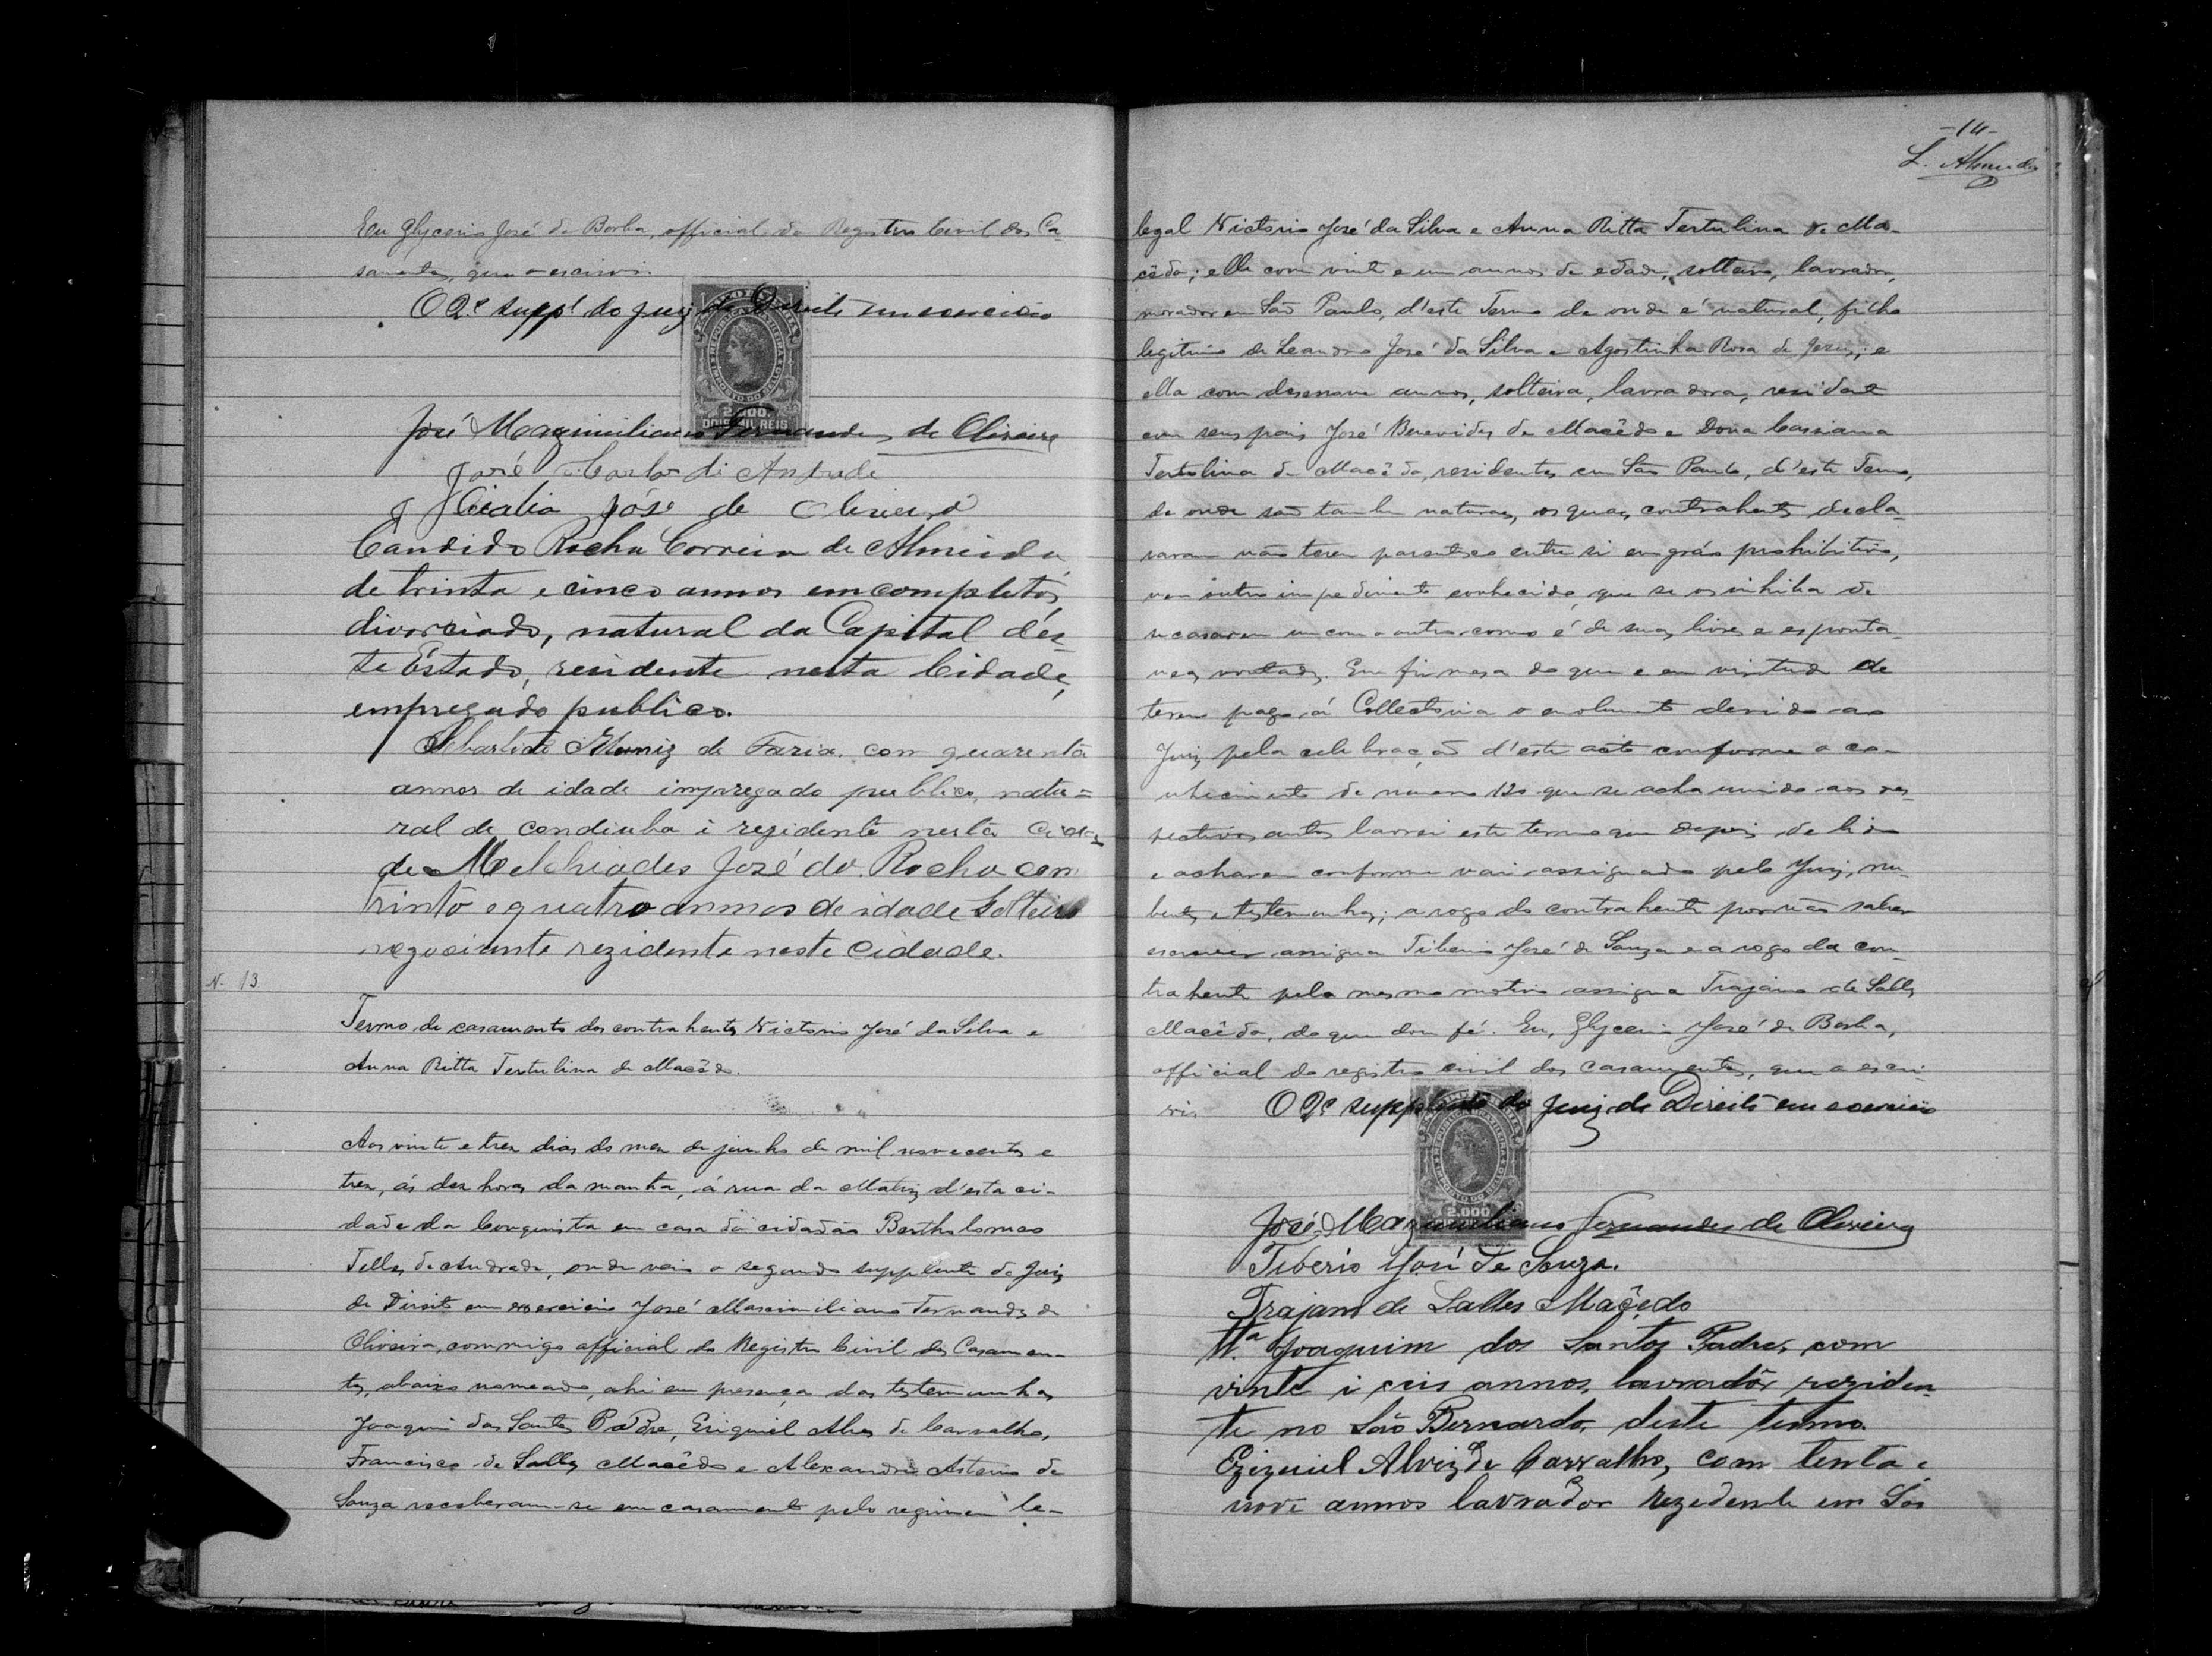 Eu Glycerio José de Borba, official do Registro Civil dos Ca-
samentos, que o escrivi.
O 2º suppe do juiz de Direito em exercicio
REPUBLICA BRAZILEIRA
IMPOSTO DO SELLO
2.000.
DOIS MIL REIS
José Maximiliano Fernandes de Oliveira
José Carlos di Andrade
José de Oliveira
Candido Rocha Correia de Almeida
de trinta e cinco annos emcompletos
divorciado, natural da Capital d'es-
te Estado, residente nesta Cidade,
empregado publico.
Sebastião Muniz de Faria. con quarenta
annos de idade impregado publico, natu=
ral de condiuba i rezidente nesta Cida-
de Melchiades José da Rocha com
trinta e quatro annos de idade Solteiro
negociante rezidente neste Cidade.
N. 13
Termo de casamento dos contrahentes Victorio José da Silva e
Anna Ritta Tertulina de Macêdo.
Aos vinte e tres dias do mez de junho de mil novecentos e
tres, ás dez horas da manha, á rua da Matriz d'esta ci-
dade da Conquista em casa do cidadão Bartholomeo
Telles de Andrade, onde veio o segundo supplente do Juiz
de Direito em exercicio José Maximiliano Fernandes de
Oliveira, commigo official do Registro Civil dos Casamen-
tos, abaixo nomeado, ahi em presença das testemunhas
Joaquim dos Santos Padre, Eziquiel Alves de Carvalho,
Francisco de Salles Macêdo e Alexandre Asterio de
Souza receberam-se em casamento pelo regimen le-
-14-
L. Almeida
legal Victorio José da Silva e Anna Ritta Tertulina de Ma-
cêdo; elle com vinte e um annos de edade, solteiro, lavrador,
morador em São Paulo, d'este Termo de onde é natural, filho
legitimo de Leandro José da Silva e Agostinha Rosa de Jesus; e
ella com desenove annos, solteira, lavradora, residente
com seus pais José Benevides de Macêdo e Dona Cassiana
Tertulina de Macêdo, residentes em São Paulo, d'este Termo,
de onde são tambem naturaes, os quaes contrahentes decla-
raram não terem parentesco entre si em gráo prohibitivo,
nem outro impedimento conhecido, que se os inhiba de
se casarem um com o outro como é de suas livres e esponta-
neas vontades. Em firmesa do que e em virtude de
terem pago á Collectoria o emolumento devido ao
Juiz pela celebração d'este acto conforme o co-
nhecimento de numero 120 que se acha unido aos res-
pectivos autos lavrei este termo que depois de lido
e acharem conforme vai assignado pelo Juiz, nu-
bentes e testemunhas; a rogo do contrahente por não saber
escrever assigna Tiberio José de Souza e a rogo da con-
trahente pelo mesmo motivo assigna Trajano de Salles
Macêdo, do que dou fé. Eu, Glycerio José de Borba,
official do registro civil dos casamentos, que o escri-
vi.
O 2º supplente do Juiz de Direito em exercicio
REPUBLICA BRAZILEIRA
IMPOSTO DO SELLO
2.000
José Maximiliano Fernandes de Oliveira
Tiberio José de Souza.
Trajano de Salles Macêdo
Ttª Joaquim dos Santos Padre, com
vinte i ceis annos, lavradôr reziden-
te no São Bernardo, deste termo.
Ezizeuiel Alviz de Carvalho, com tenta e
nove annos lavrador rezedente em São